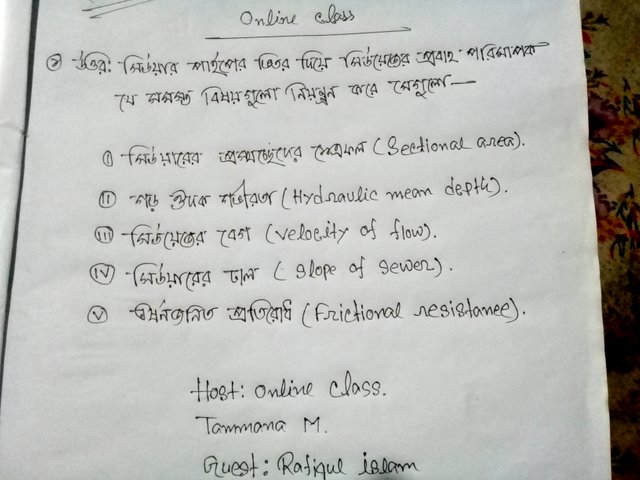 Online class
② উত্তর: সিউয়ার পাইপের ভিতর দিয়ে সিউয়েজের প্রবাহ পরিমাপক
যে সমস্ত বিষয়গুলো নিয়ন্ত্রন করে সেগুলো—
① সিউয়ারের প্রস্থচ্ছেদের ক্ষেত্রফল (Sectional area).
⑪ গড় উদক গভীরতা (Hydraulic mean depth).
⑪ı সিউয়েজের বেগ (velocity of flow).
ⓘⓥ সিউয়ারের ঢাল ( Slope of Sewer).
ⓥ ঘর্ষনজনিত প্রতিরোধ (Frictional resistance).
Host: Online Class.
Tammana M.
Guest: Rafiqul islam